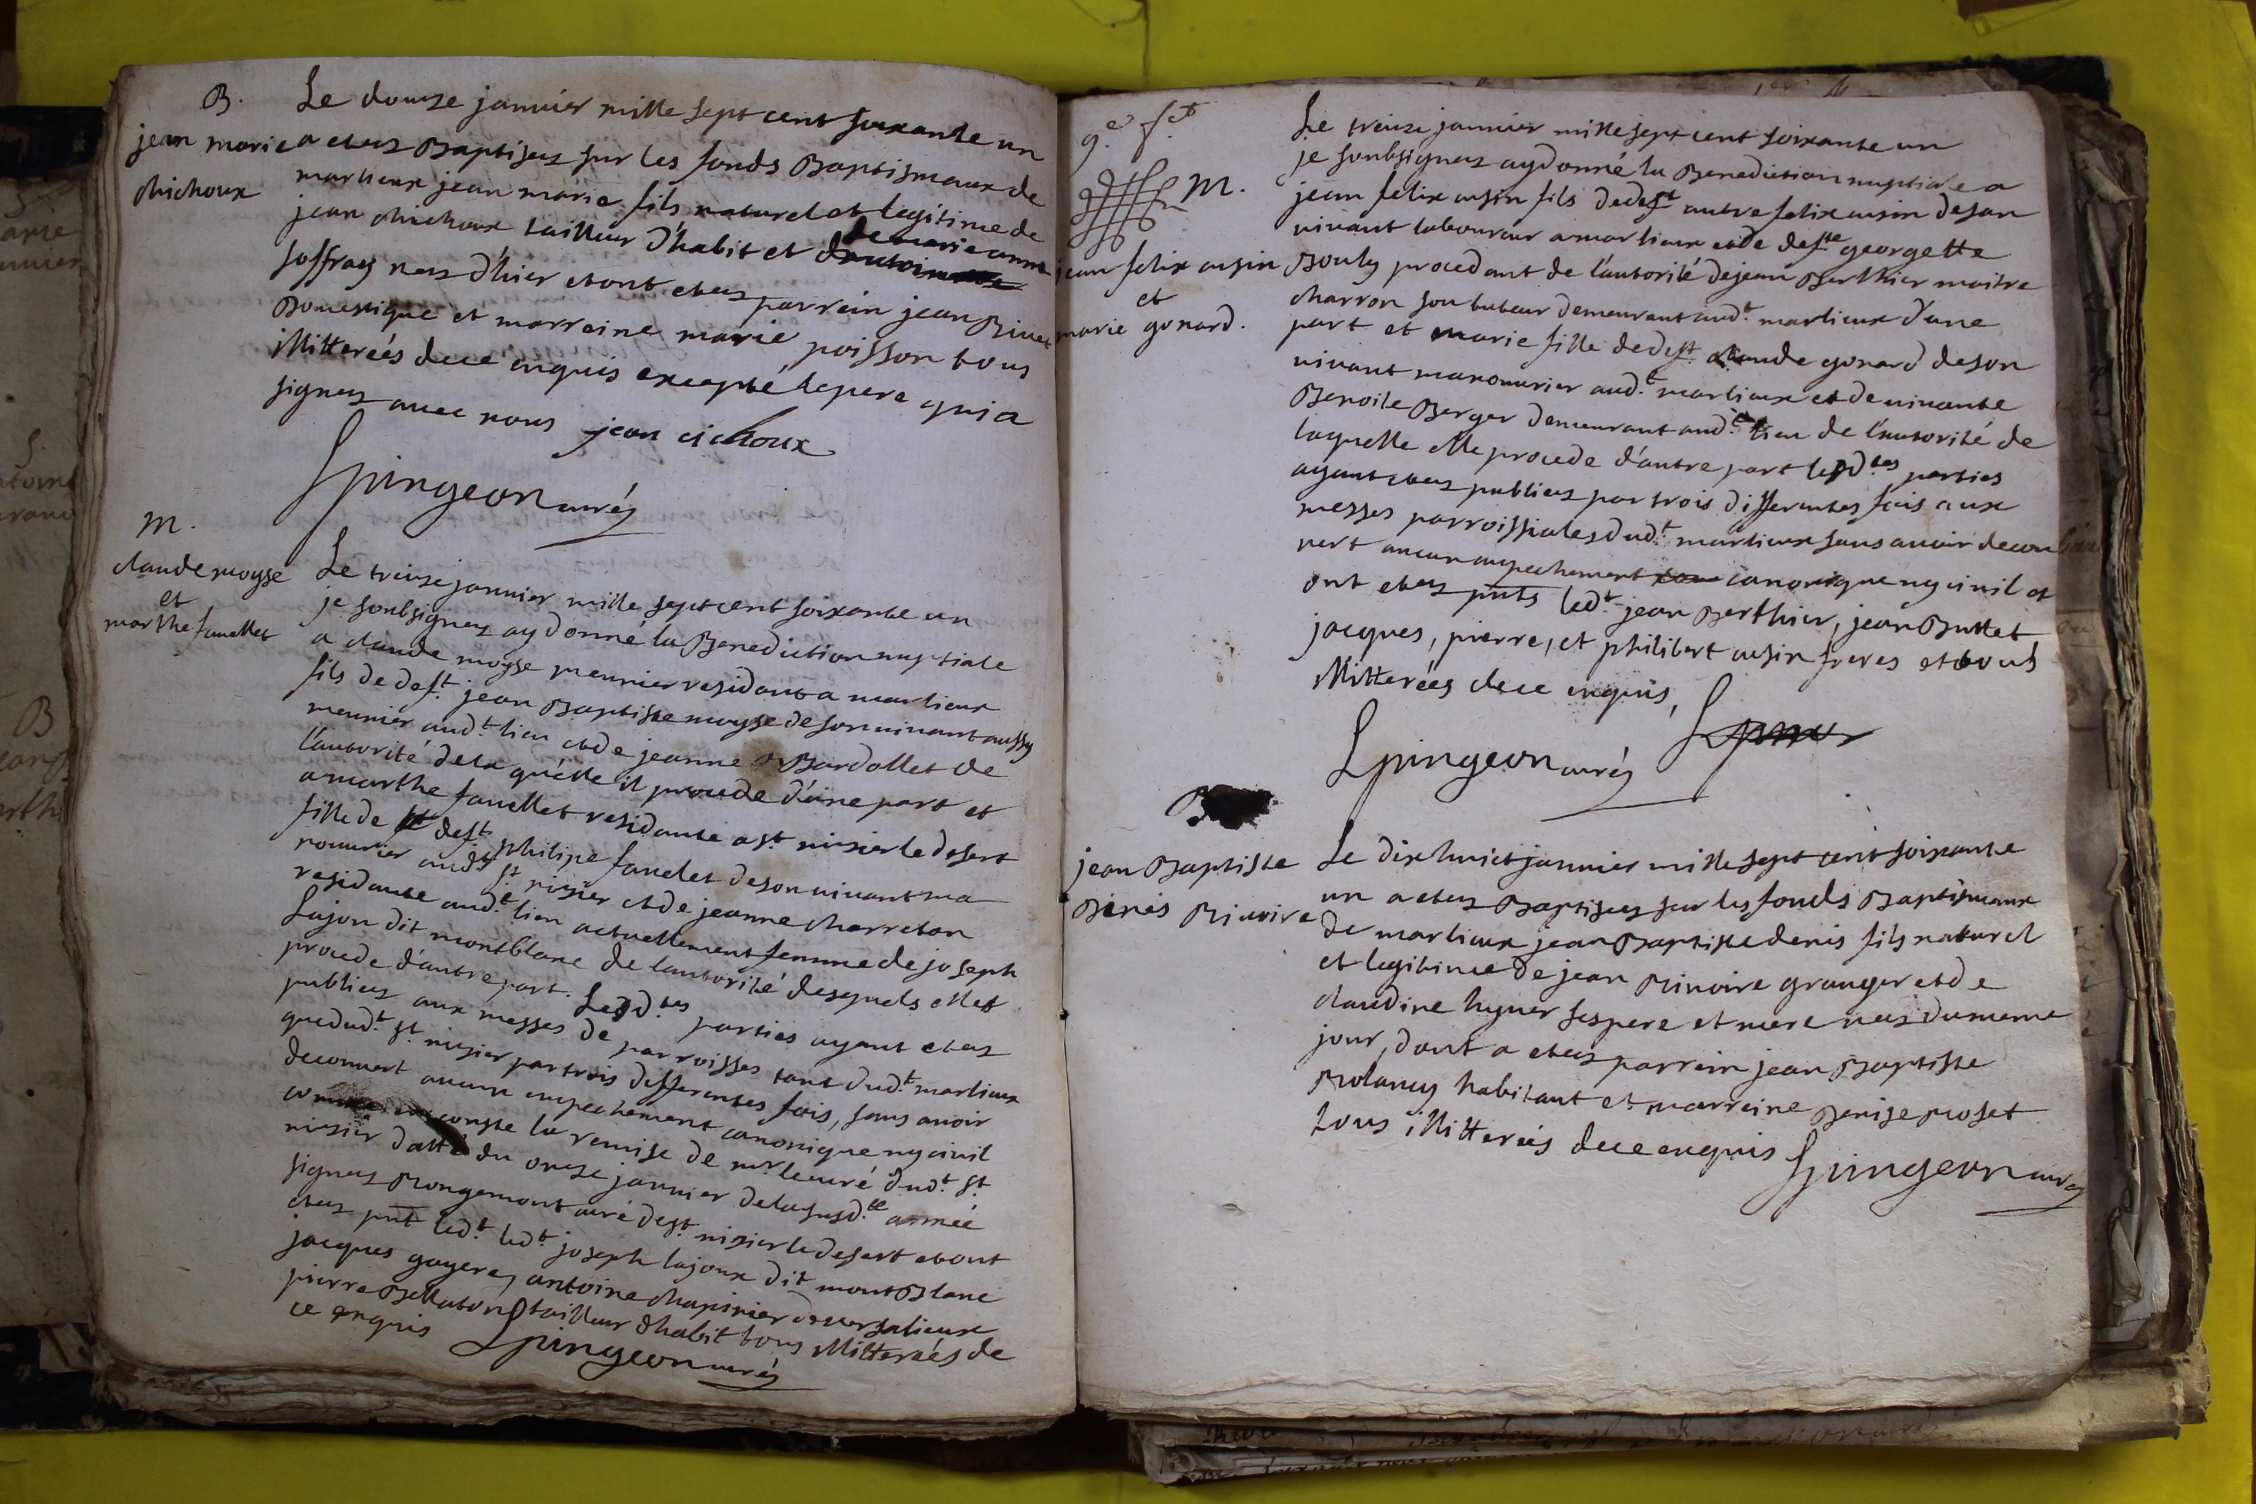 B.
jean marie
chichoux
Le douze janvier mille sept cent soixante un
a eteez Baptisez sur les fonds Baptismaux de
marlieux jean marie fils naturel et legitime de
jean chichoux tailleur d'habit et de marie anne
soffray nez d'hier et ont eteez parrein jean Binet
Domestique et marreine marie poisson tous
illitterées de ce enquis excepté le pere qui a
signez avec nous jean cichoux
Spingeon curéz
M.
claude moyse
et
marthe favellet
Le treize janvier mille sept cent soixante un
je soubsignez ay donné la Benediction nuptiale
a claude moyse meunier residant a marlieux
fils de deft. jean Baptiste moyse de son vivant aussy
meunier audt. lieu et de jeanne Bardollet de
l'autorité de la quélle il procede d'úne part et
a marthe favellet residante a st. nizier le desert
fille de deft. philipe favelet de son vivant ma
nouvrier audt. st. nizier et de jeanne charreton
residante audt. lieu actuellement femme de joseph
Lajon dit montblanc de lautorité desquels elle
procede d'autre part. Lesdtes parties ayant eteez
publiez aux messes de parroisses tant dudt. marlieux
que dudt. st. nizier par trois differentes fois, sans avoir
decouvert aucun empechement canonique ny civil
comme en conste la remise de mr. le curé dudt. st.
nizier datté du onze janvier de la susdte. année
signez Rongemont curé de st. nizier le desert et ont
eteez pnt ledt. ledt. joseph lajoux dit mont Blanc
jacques gayere, antoine chapinier de versalieux
pierre Bellaton tailleur d'habit tous illitterées de
ce enquis Spingeon curéz
9.e f.et
M.
jean felix cusin
et
marie gonard.
Le treize janvier mille sept cent soixante un
je soubsignez ay donné la Benediction nuptiale a
jean felix cusin fils de deft. autre felix cusin de son
vivant laboureur a marlieux et de defte. georgette
Bouly procedant de l'autorité de jean Berthier maitre
charron son tuteur demeurant audt. marlieux d'une
part et marie fille de deft. claude gonard de son
vivant manouvrier audt. marlieux et de vivante
Benoite Berger demeurant audt. lieu de l'autorité de
laquelle elle procede d'autre part lesdtes parties
ayant eteez publiez par trois differentes fois aux
messes parroissiales dudt. marlieux sans avoir decou
vert aucun empechement canonique ny civil et
ont eteez pnts ledt. jean Berthier, jean Buttet
jacques, pierre, et philibert cusin freres et tous
illitterées de ce enquis,
Spingeon curéz
B
jean Baptiste
Denis Rivoire
Le dix huict janvier mille sept cent soixante
un a eteez Baptisez sur les fonds Baptismaux
de marlieux jean Baptiste denis fils naturel
et legitime de jean Rivoire granger et de
claudine hyver ses pere et mere nez du meme
jour, dont a eteez parrein jean Baptiste
Rolancy habitant et marreine Denise proset
tous illitterées de ce enquis Spingeon curéz